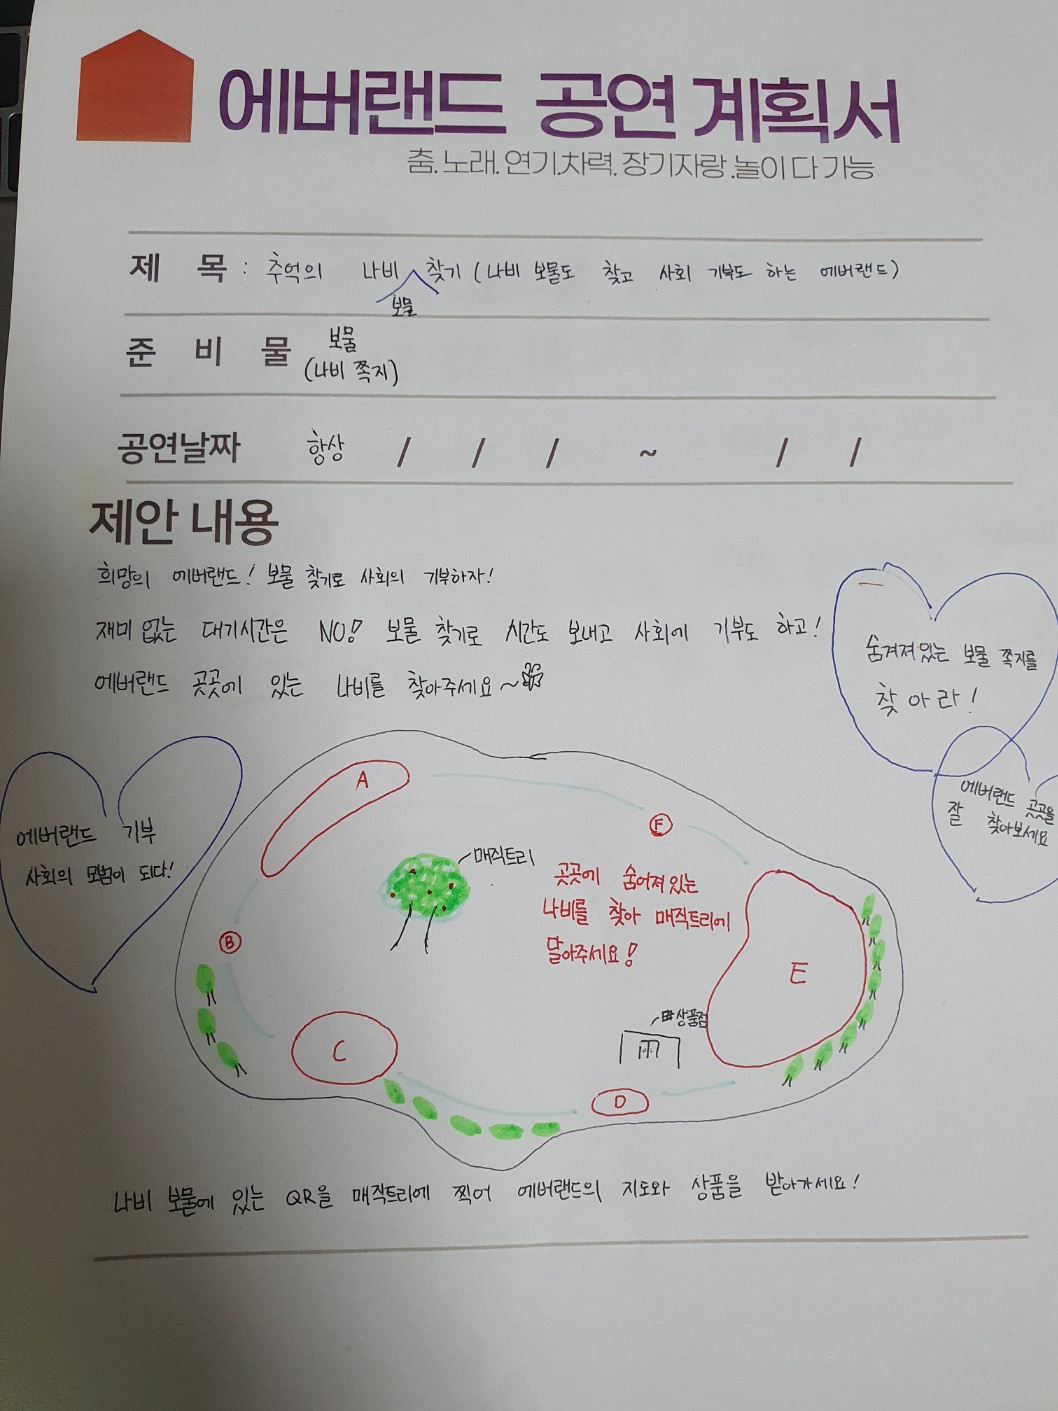 에버랜드 공연 계획서
춤.노래.연기.차력.장기자랑.놀이 다 가능
제 목 : 추억의 나비 보물 찾기 (나비 보물도 찾고 사회 기부도 하는 에버랜드)
준 비 물 보물
(나비 쪽지)
공연날짜 항상 / / / ~ / /
제안 내용
희망의 에버랜드! 보물 찾기로 사회의 기부하자!
재미 없는 대기시간은 NO! 보물 찾기로 시간도 보내고 사회에 기부도 하고!
에버랜드 곳곳에 있는 나비를 찾아주세요~
숨겨져있는 보물 쪽지를
찾아라!
에버랜드 곳곳을
잘 찾아보세요
에버랜드 기부
사회의 모범이 되다!
A
F
매직트리
곳곳에 숨어져있는
나비를 찾아 매직트리에
달아주세요!
B
E
상품점
C
D
나비 보물에 있는 QR을 매직트리에 찍어 에버랜드의 지도와 상품을 받아가세요!